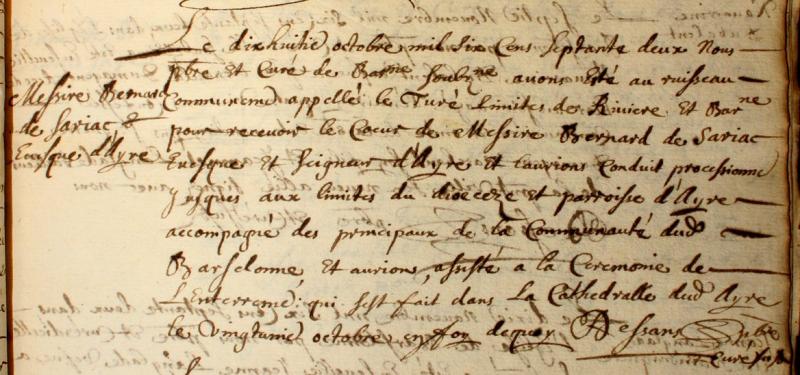 Le dixhuitie octobre mil six Cens septante deux Nous
pbre et Curé de Barne soubzne avons esté au ruisseau
Messire Bernard
de Sariac
Euesque d'Ayre
Communeme appellé le Turé limites de Riviere et Barne
pour recevoir le Coeur de Messire Bernard de Sariac
Euesque et seigneur d'Ayre et l'aurions Conduit processionne
jusques aux limites du dioceze et parroisse d'Ayre
accompagné des principaux de la Communauté dud
Barselonne et aurions assisté a la Ceremonie de
L'Enterreme qui sest fait dans la Cathedralle dud Ayre
le Vingtunie octobre en foy dequoy Dessans pbre
et Curé